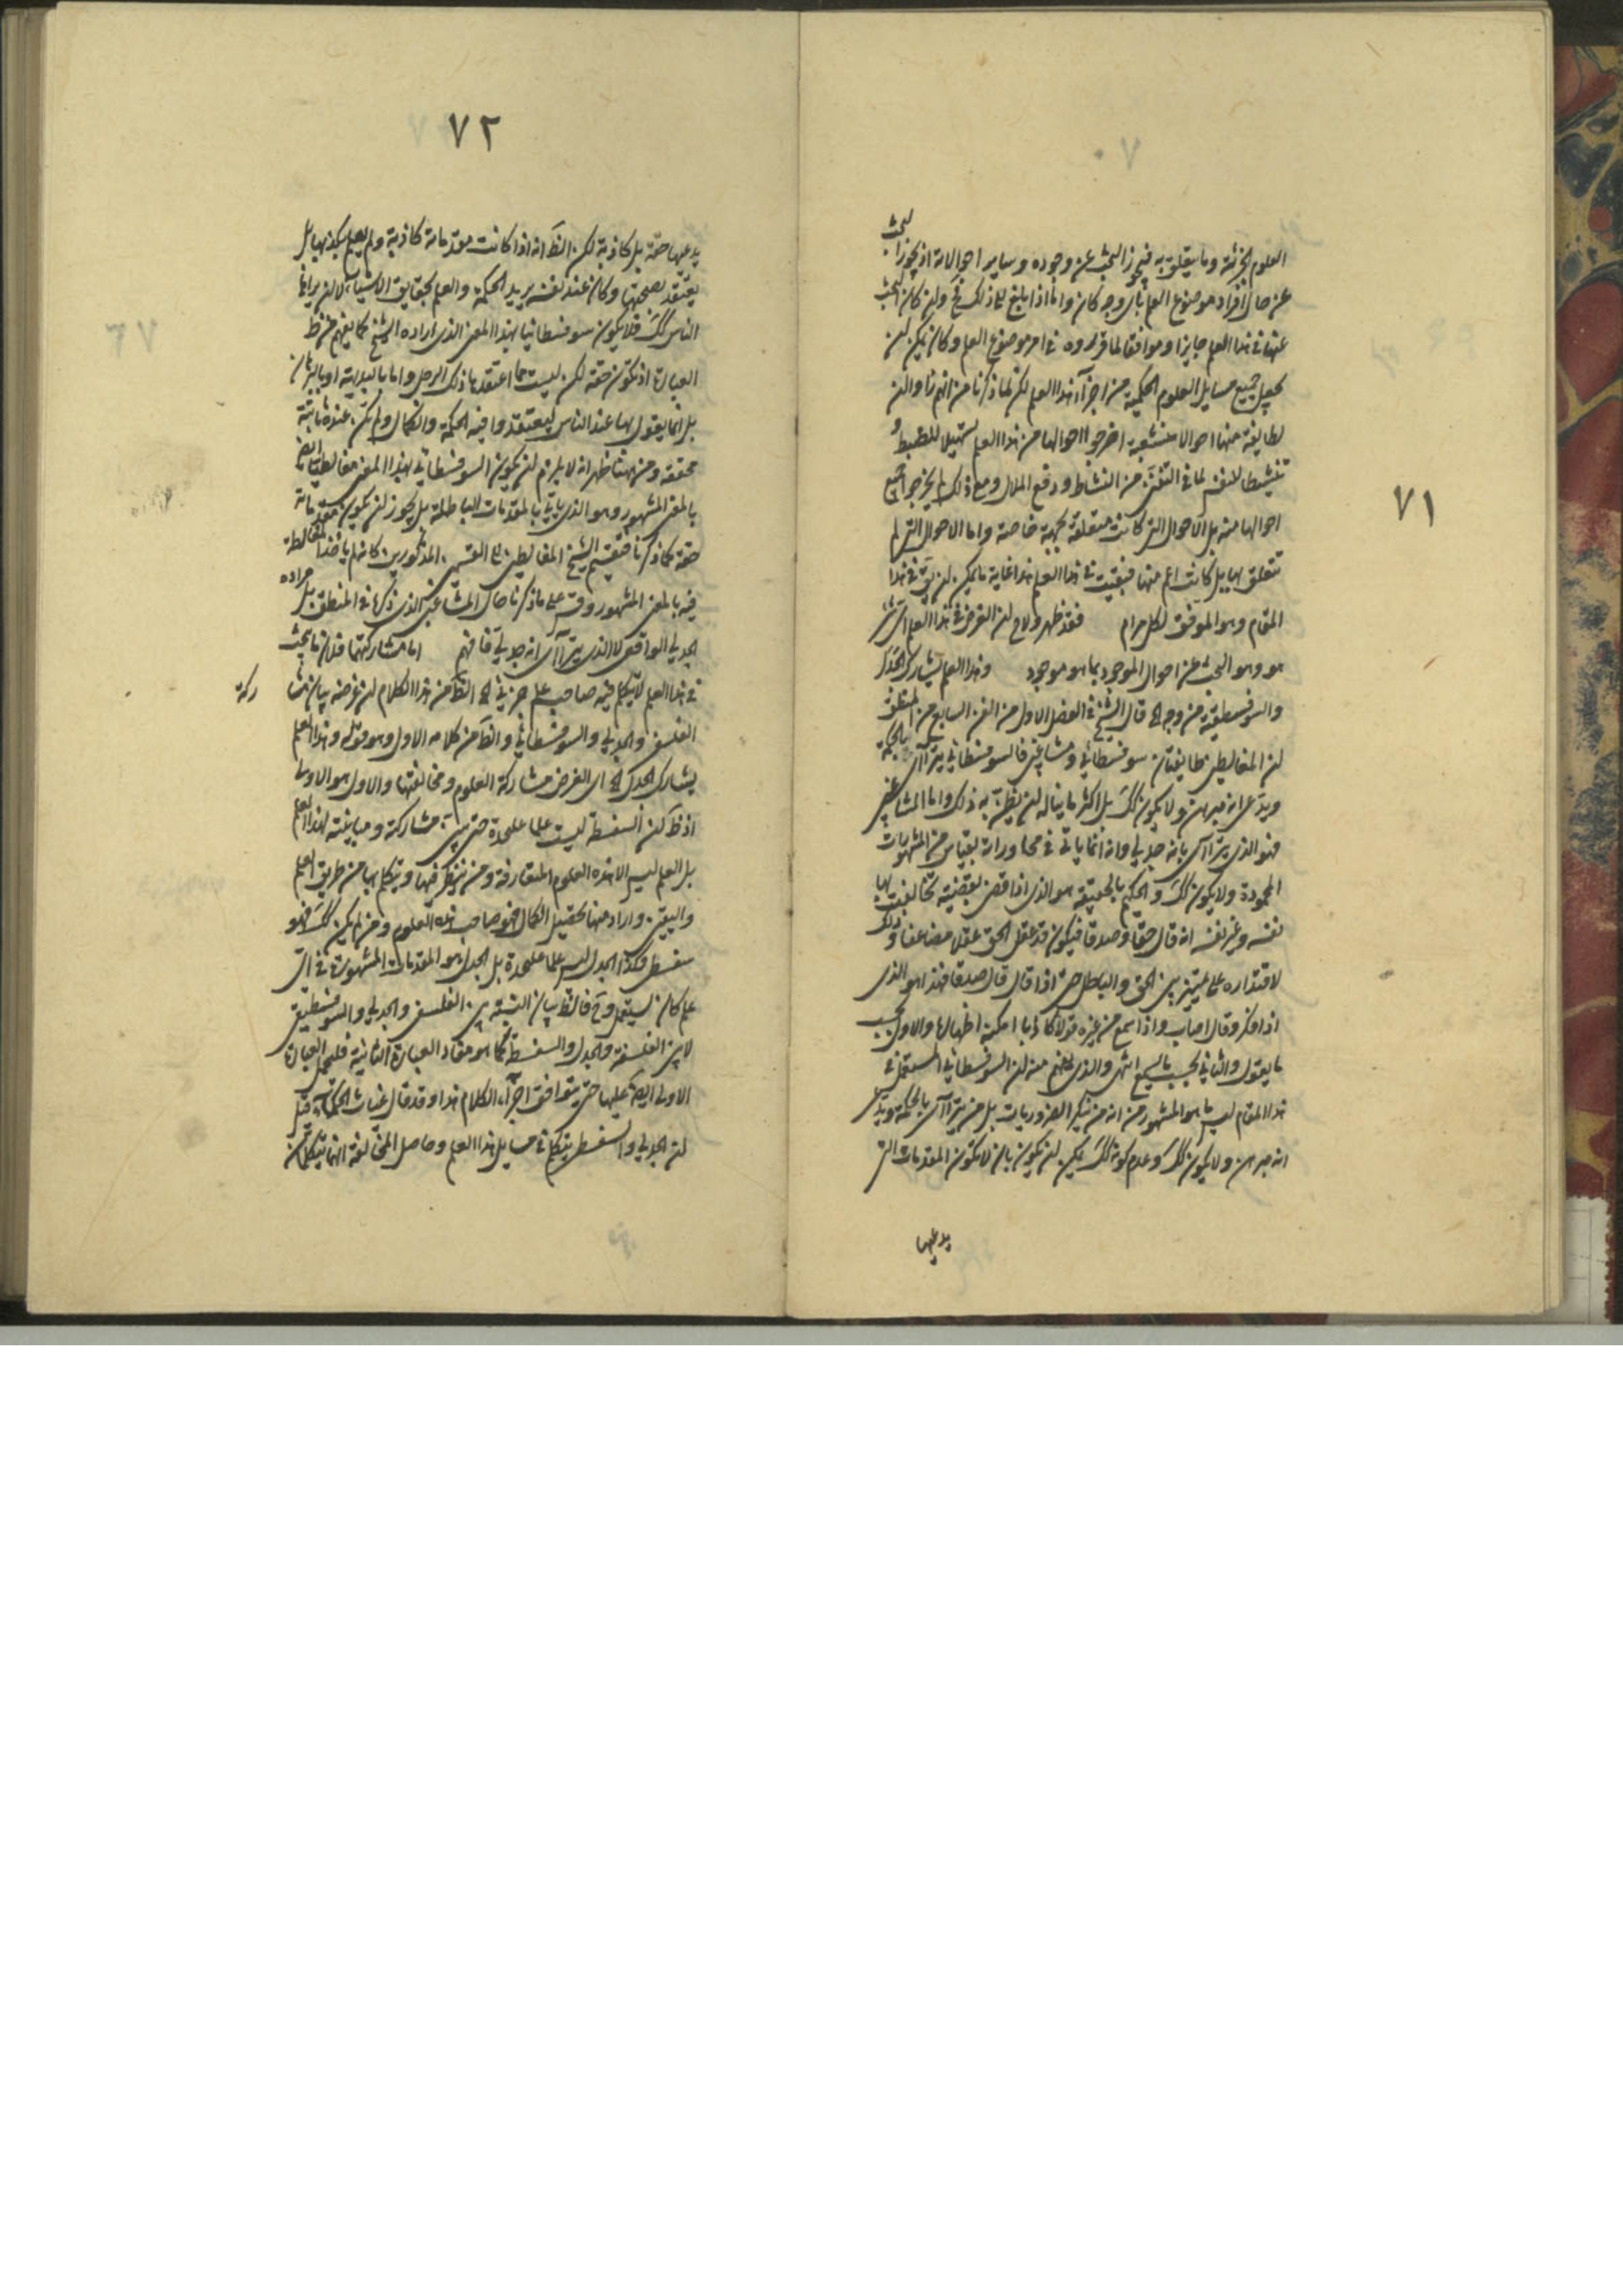 ٧١
العلوم الجزئية وما يتعلق به فيجوز البحث عن وجوده وساير احوالاته اذ يجوز البحث
عن حال افراد موضوع العلم بأى وجه كان وانا اذا بلغ الى ذلك فح ولن كان البحث
عنها فى هذا العلم جايزا وموافقا لما قرروه فى امر موضوع العلم وكان يمكن لن
يجعل جميع مسايل العلوم الحكمية من اجزآء هذا العلم لكن لما ذكرنا من
لطايفة منها احوالا متشعبة اخرجوا احوالها من هذا العلم تسهيلا للضبط و
تنشيطا للنفس لما فى التفنن من النشاط ودفع الملال ومع ذلك لم يخرجوا جميع
احوالها منه بل الاحوال التى كانت متعلقة بجهة خاصة واما الاحوال التى لم
تتعلق بها بل كانت اعم منها فبقيت فى هذا العلم هذا غاية ما يمكن لن يق فى هذا
المقام وهو الموفق لكل مرام فقد ظهر ولاح لن الغرض فى هذا العلم اى شئ
هو وهو البحث عن احوال الموجود بما هو موجود وهذا العلم يشارك الجدل
والسوفسطيقية من وجه الخ قال الشيخ فى الفصل الاول من الفن السابع من المنطق
لن المغالطين طايفتان سوفسطائي ومشاغبى فالسوفسطائي يترآاى بالحكمة
ويدعى انه مبرهن ولا يكون كك بل اكثر ما يناله لن يظن به ذلك واما المشاغبى
فهو الذى يترآاى بانه جدلي وانه انما ياتى فى محاوراته بقياس من المشهورات
المحمودة ولا يكون كك والحكيم بالحقيقة هو الذى اذا قضى بقضية يخاطب بها
نفسه وغير نفسه انه قال حقا وصدقا فيكون قد عقل الحق عقلا مضاعفا وذلك
لاقتداره على تمييز بين الحق والباطل حتى اذا قال قال صدقا فهذا هو الذى
اذا فكر وقال اصاب واذا سمع من غيره قولا كاذبا امكنه اظهارها والاول بحسب
ما يقول والثاني بحسب ما يسمع انتهى والذى يفهم منه لن السوفسطائي المستعمل فى
هذا المقام ليس ما هو المشهور من انه من ينكر الضروريات بل من يترآاى بالحكمة ويدعى
انه مبرهن ولا يكون كك وعدم كونه كك يمكن لن يكون بان لا تكون المقدمات التى
يدعيها
٧٢
يدعيها حقة بل كاذبة لكن الظ انه اذا كانت مقدماته كاذبة ولم يعلم بكذبها بل
يعتقد بصحتها وكان عند نفسه يريد الحكمة والعلم بحقايق الاشياء لا لن يرائ
الناس كك فلا يكون سوفسطائيا بهذا المعنى الذى اراده الشيخ كما يفهم من ظ
العبارة اذ تكون حقة لكن ليست مما اعتقدها ذلك الرجل واما بالبديهة او بالبرهان
بل انما يقول بها عند الناس ليعتقدوا فيه الحكمة والكمال ولم تكن عنده ثابتة
محققة ومن هنا ظهر انه لا يلزم لن يكون السوفسطائي بهذا المعنى مغالطيا ايض
بالمعنى المشهور وهو الذى ياتى بالمقدمات الباطلة بل يجوز لن تكون مقدماته
حقة كما ذكرنا فتقسيم الشيخ المغالطين الى القسمين المذكورين كانه لم ياخذ المغالطة
فيه بالمعنى المشهور وقس على ما ذكرنا حال المشاغبى الذى ذكرها فى المنطق بل مراده
الجدلي الواقعى لا الذى يترآاى انه جدلي فافهم اما مشاركتها فلان ما يبحث
فى هذا العلم لا يتكلم فيه صاحب علم جزئي الخ الظ من هذا الكلام لن غرضه بيان مشا
ركة
الفلسفى والجدلي والسوفسطائي والظ من كلامه الاول وهو قوله وهذا العلم
يشارك الجدل الخ اى الغرض مشاركة العلوم ومخالفتها والاول هو الاولى
اذ ظ لن السفسطة ليست علما علىحدة حتى يبين مشاركته ومباينته لهذا العلم
بل العلم ليس الا هذه العلوم المتعارفة ومن ينظر فيها ويتكلم بها من طريق العلم
واليقين واراد منها تحصيل الكمال فهو صاحب هذه العلوم ومن لم يكن كك فهو
سفسطى وكذا الجدل ليس علما علىحدة بل الجدل هو المقدمات المشهورة فى اى
علم كان يستعمل وح فالظ بيان النسبة بين الفلسفى والجدلي والسوفسطيقى
لا بين الفلسفة والجدل والسفسطة كما هو مفاد العبارة الثانية فليحمل العبارة
الاولى ايضا عليها حتى يتوافق اجزآء الكلام هذا وقد قال غياث الحكمآء قيل
لن الجدلي والسفسطى يتكلم فى مسايل هذا العلم وحاصل المخالفة انهما يتكلمان